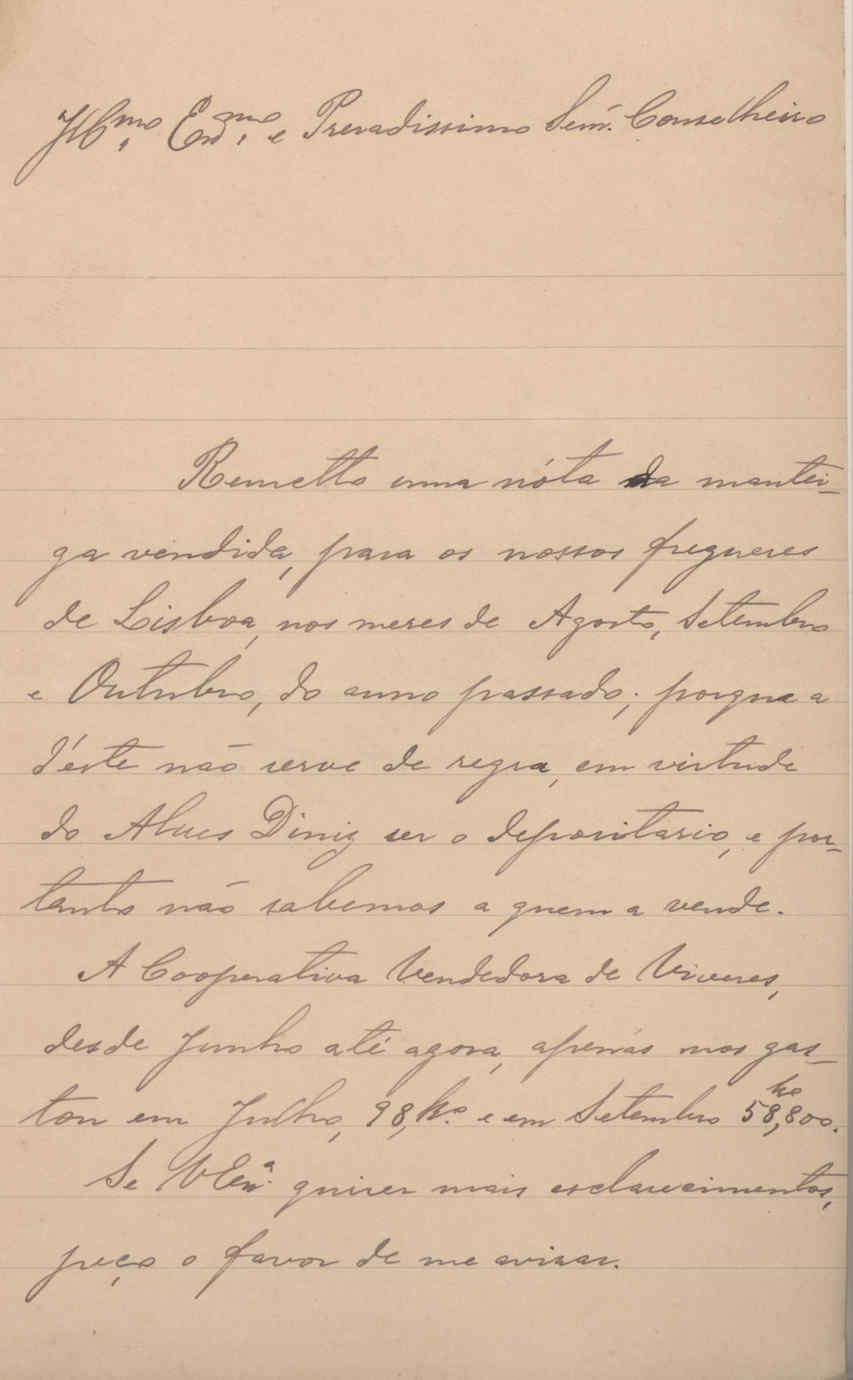 Ill.mo Ex.mo e Presadissimo Senr. Conselheiro
Remetto uma nóta da mantei-
ga vendida, para os nossos fregueses
de Lisboa, nos meses de Agosto, Setembro
e Outubro, do anno passado; porque a
d'éste não serve de regra, em virtude
do Alves Diniz ser o depositario, e por-
tanto não sabemos a quem a vende.
A Cooperativa Vendedora de Viveres,
desde Junho até agora, apenas nos gas-
tou em Julho, 98,k.o e em Setembro 58,800 ko.
Se V Ex.a quiser mais esclarecimentos,
peço o favor de me avisar.